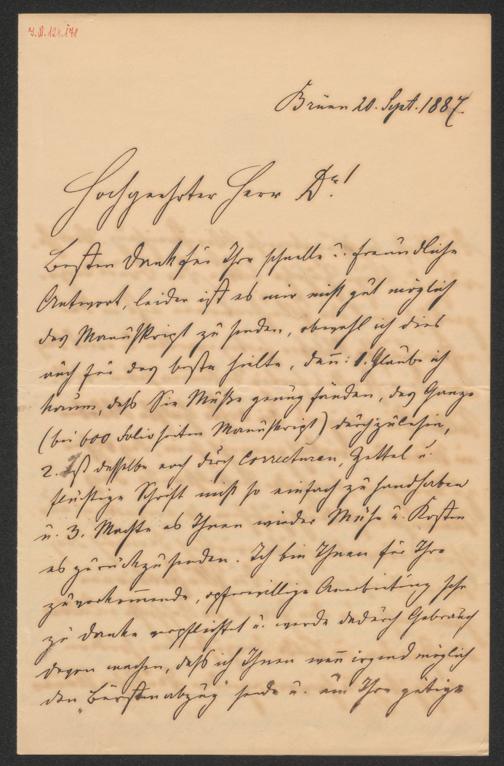 I.N. 124.141
Brünn 20. Sept. 1887.
Hochgeehrter Herr Dr!
Besten Dank für Ihre schnelle u. freundliche
Antwort, leider ist es mir nicht gut möglich
das Manuskript zu senden, obwohl ich dies
auch für das beste hielte, denn: 1. Glaube ich
kaum, daß Sie Muße genug fänden, das Ganze
(bei 600 Folioseiten Manuskript) durchzulesen,
2. Ist dasselbe auch durch Correcturen, Zettel u.
flüchtige Schrift nicht so einfach zu handhaben
u. 3. Machte es Ihnen wieder Mühe u. Kosten
es zurückzusenden. Ich bin Ihnen für Ihre
zuvorkommende, opferwillige Anerbietung sehr
zu Danke verpflichtet u. werde dadurch Gebrauch
davon machen, daß ich Ihnen wenn irgend möglich
den „Bürstenabzug" sende u. um Ihre gütige